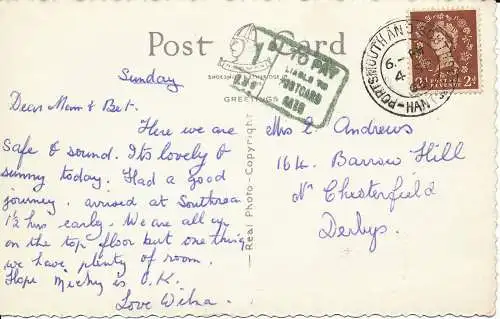 Post Card
GREETINGS
TO PAY
LIABLE TO
POSTCARD
RATE
PORTSMOUTH AN
6 -
4
HAN
POSTAGE REVENUE
2d 2d
Sunday
Dear Mam & Bet.
Here we are
safe & sound. Its lovely &
sunny today. Had a good
journey. arrived at Southsea
1½ hrs early. We are all up
on the top floor but one thing
we have plenty of room.
Hope Micky is O.K.
Love Wilna.
Real Photo-Copyright
Mrs E Andrews
164. Barrow Hill
Nr Chesterfield
Derbys.